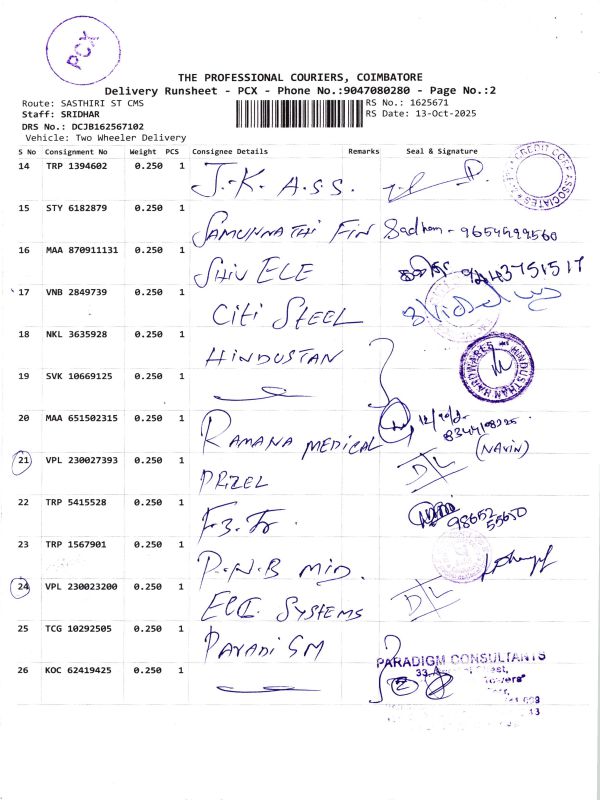 PCX
THE PROFESSIONAL COURIERS, COIMBATORE
Delivery Runsheet - PCX - Phone No.:9047080280 - Page No.:2
Route: SASTHIRI ST CMS
RS No.: 1625671
Staff: SRIDHAR
RS Date: 13-Oct-2025
DRS No.: DCJB162567102
Vehicle: Two Wheeler Delivery
S No Consignment No Weight PCS Consignee Details Remarks Seal & Signature
14 TRP 1394602 0.250 1 J.K. A.S.S.
CREDIT CORE ASSOCIATES
15 STY 6182879 0.250 1 SAMUNNATHI FIN Sadham - 9654999560
16 MAA 870911131 0.250 1 SHIV ELE
17 VNB 2849739 0.250 1 CITI STEEL
18 NKL 3635928 0.250 1 HINDUSTAN
HINDUSTHAN HARDWARES
19 SVK 10669125 0.250 1
20 MAA 651502315 0.250 1 RAMANA MEDICAL
(NAVIN)
21 VPL 230027393 0.250 1 PRIZEL D/L
22 TRP 5415528 0.250 1
98652
55650
23 TRP 1567901 0.250 1 P.N.B MID.
24 VPL 230023200 0.250 1 ELE. SYSTEMS D/L
25 TCG 10292505 0.250 1
PARADIGM CONSULTANTS
26 KOC 62419425 0.250 1
2